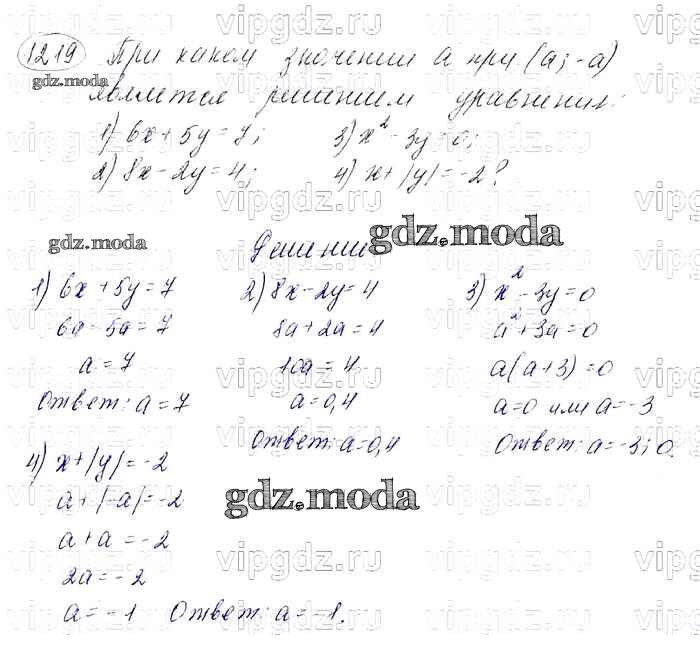 1219 При каком значении а пра (а; -а)
является решением уравнения:
1) 6x + 5y = 7; 3) x² - 3y = 0;
2) 8x - 2y = 4; 4) x + |y| = -2?
gdz.moda
Решение
gdz.moda
gdz.moda
1) 6x + 5y = 7
6a - 5a = 7
a = 7
Ответ: a = 7
2) 8x - 2y = 4
8a + 2a = 4
10a = 4
a = 0,4
Ответ: a = 0,4
3) x² - 3y = 0
a² + 3a = 0
a(a + 3) = 0
a = 0 или a = -3
Ответ: a = -3; 0.
4) x + |y| = -2
a + |-a| = -2
a + a = -2
2a = -2
a = -1 Ответ: a = -1.
gdz.moda
vipgdz.ru